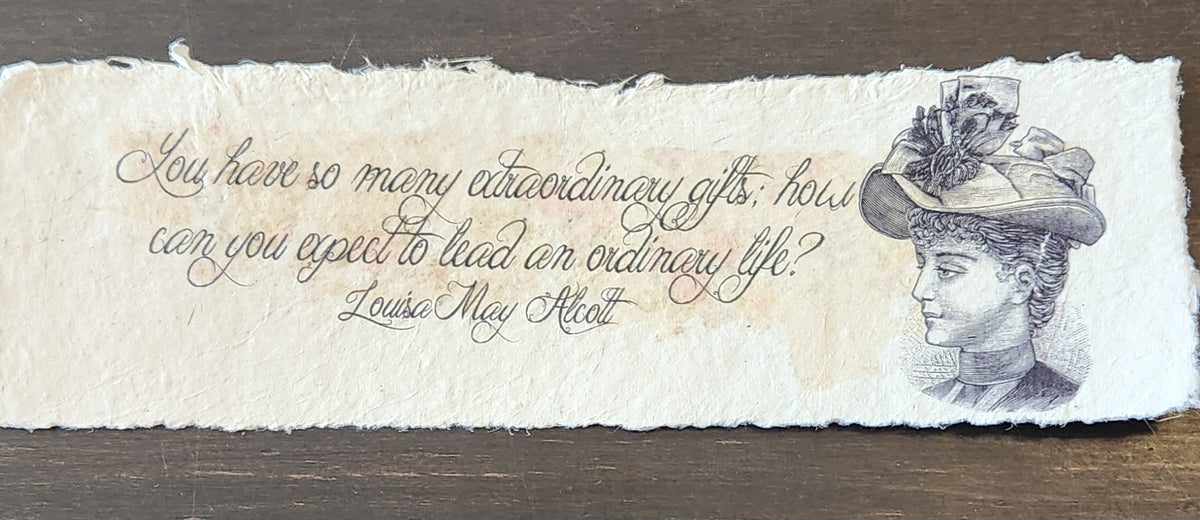 You have so many extraordinary gifts; how
can you expect to lead an ordinary life?
Louisa May Alcott